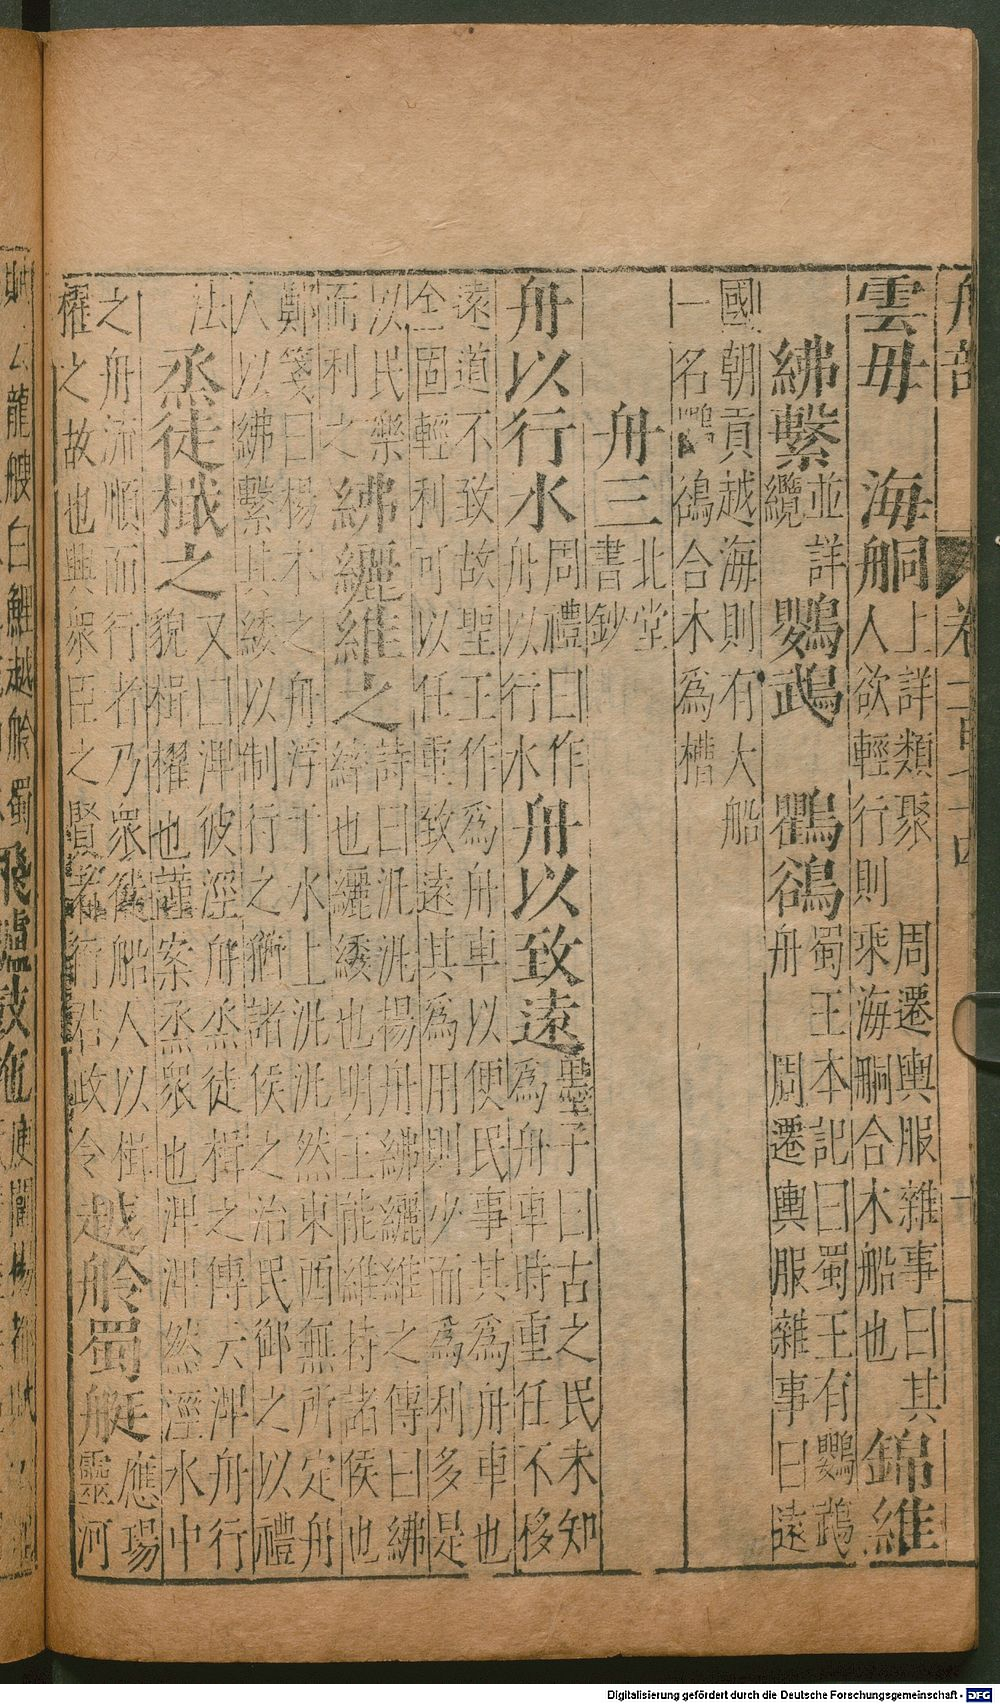 舟部　卷
雲母　海䑪上詳類聚　周遷輿服雜事曰其人欲輕行則乘海䑪合木船也　錦維
紼繫並詳纜　鸚鵡　鸜鵒蜀王本記曰蜀王有鸚鵡舟　周遷輿服雜事曰遠
國朝貢越海則有大船一名鸚鵒合木為槽
舟三北堂書鈔
舟以行水周禮曰作舟以行水　舟以致遠墨子曰古之民未知為舟車時重任不移
遠道不致故聖王作為舟車以便民事其為舟車也全固輕利可以任重致遠其為用則少而為利多是
以民樂而利之　紼纚維之詩曰汎汎揚舟紼纚維之傳曰紼繂也纚緌也明王能維持諸侯也
鄭箋曰楊木之舟浮于水上汎汎然東西無所定舟人以紼繫其緌以制行之猶諸侯之治民御之以禮
法　烝徒檝之又曰淠彼涇舟烝徒楫之傳云淠舟行貌楫櫂也謹案烝眾也淠淠然涇水中
之舟流順而行者乃衆徒船人以楫櫂之故也興衆臣之賢者行君政令　越舲蜀艇應瑒靈河
Digitalisierung gefördert durch die Deutsche Forschungsgemeinschaft - DFG